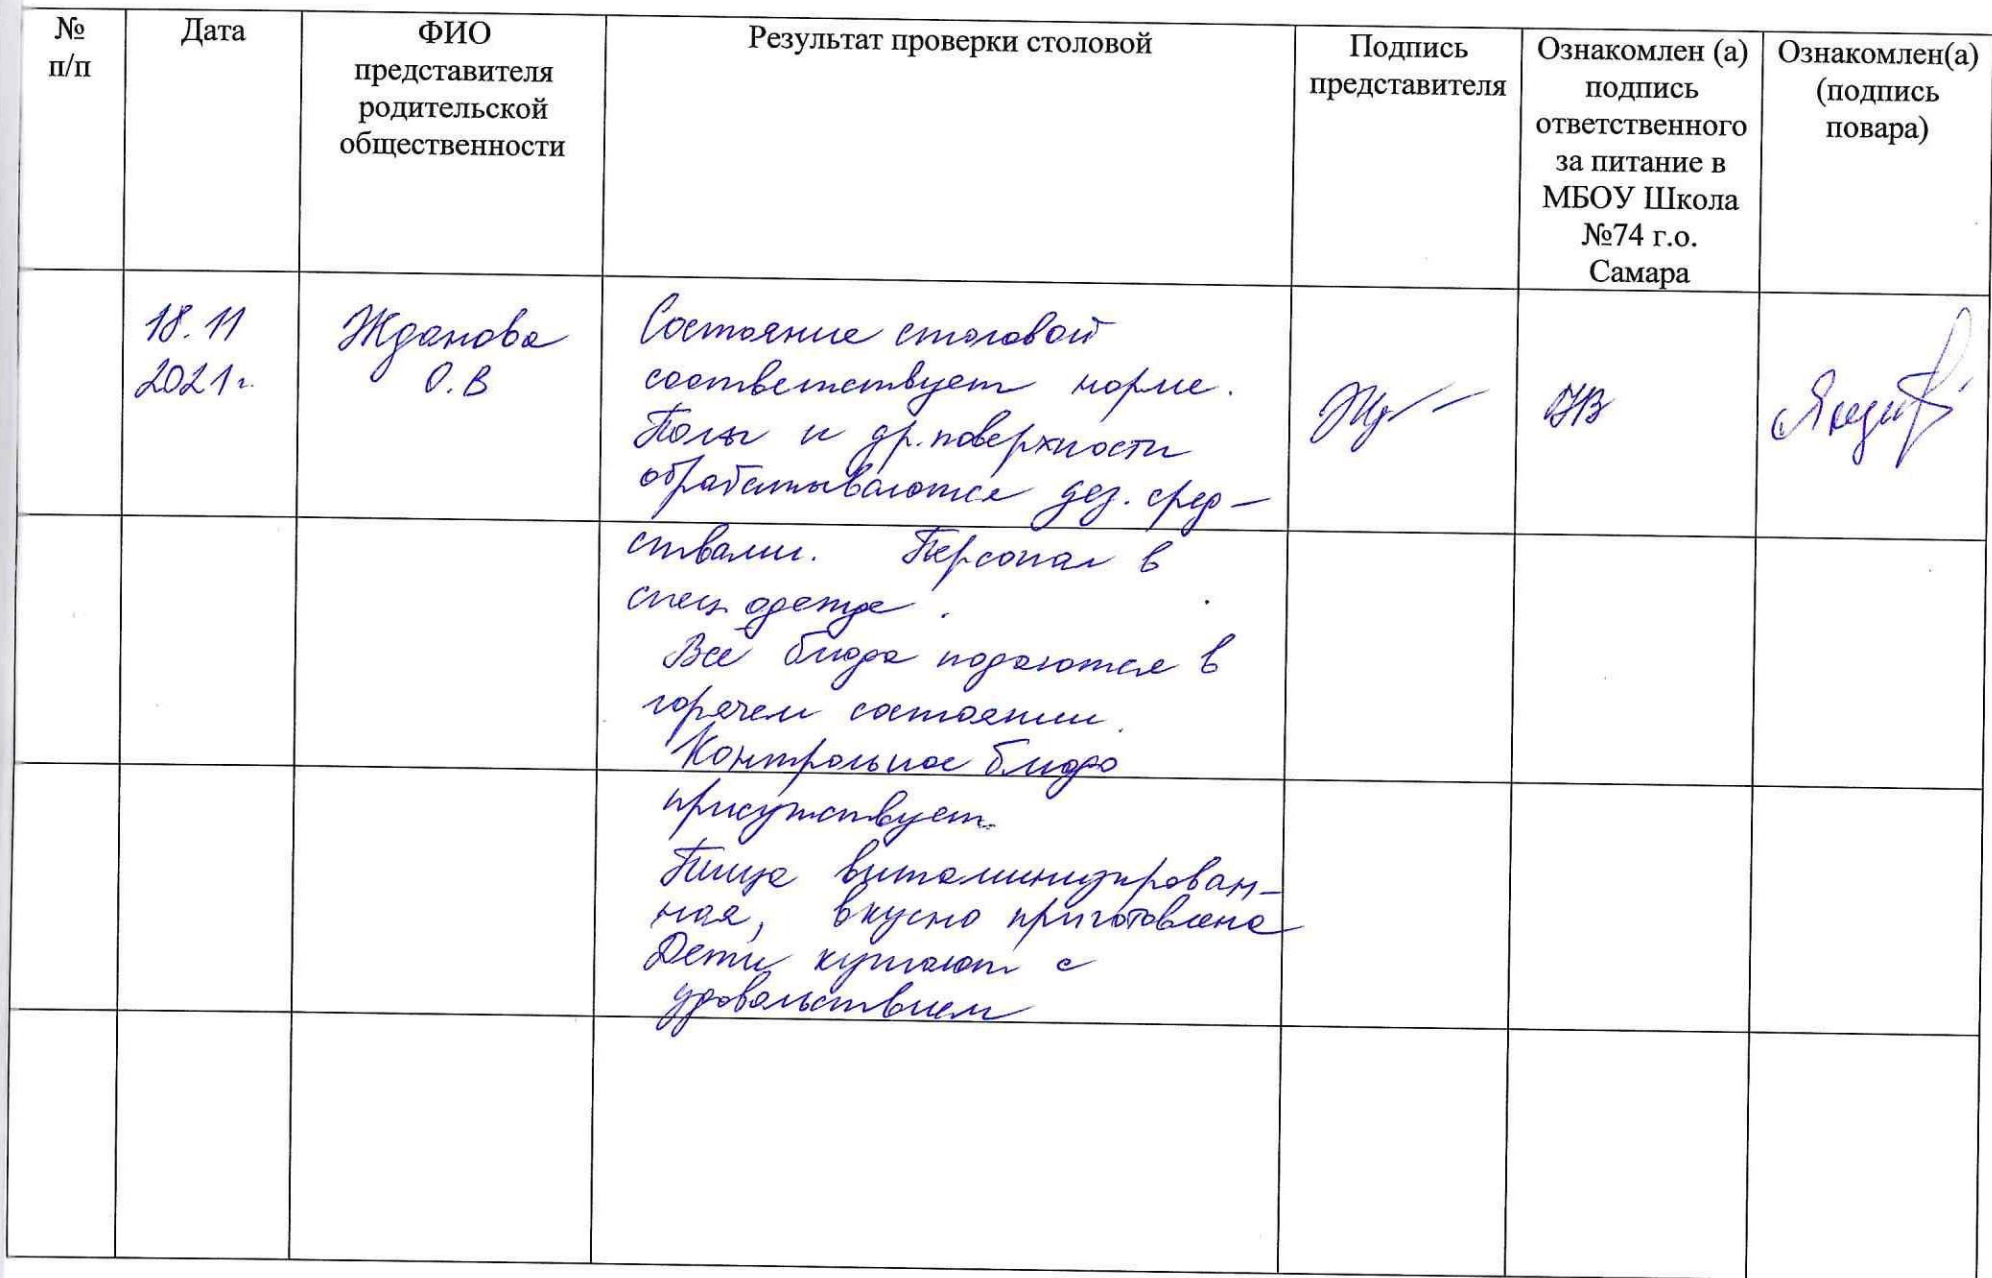 №
п/п
Дата
ФИО
представителя
родительской
общественности
Результат проверки столовой
Подпись
представителя
Ознакомлен (а)
подпись
ответственного
за питание в
МБОУ Школа
№74 г.о.
Самара
Ознакомлен(а)
(подпись
повара)
18.11
2021г.
Жданова
О.В
Состояние столовой
соответствует норме.
Полы и др. поверхности
обрабатываются дез. сред-
ствами. Персонал в
спец. одежде.
Все блюда подаются в
горячем состоянии.
Контрольное блюдо
присутствует.
Пища витаминизирован-
ная, вкусно приготовлена
Дети кушают с
удовольствием